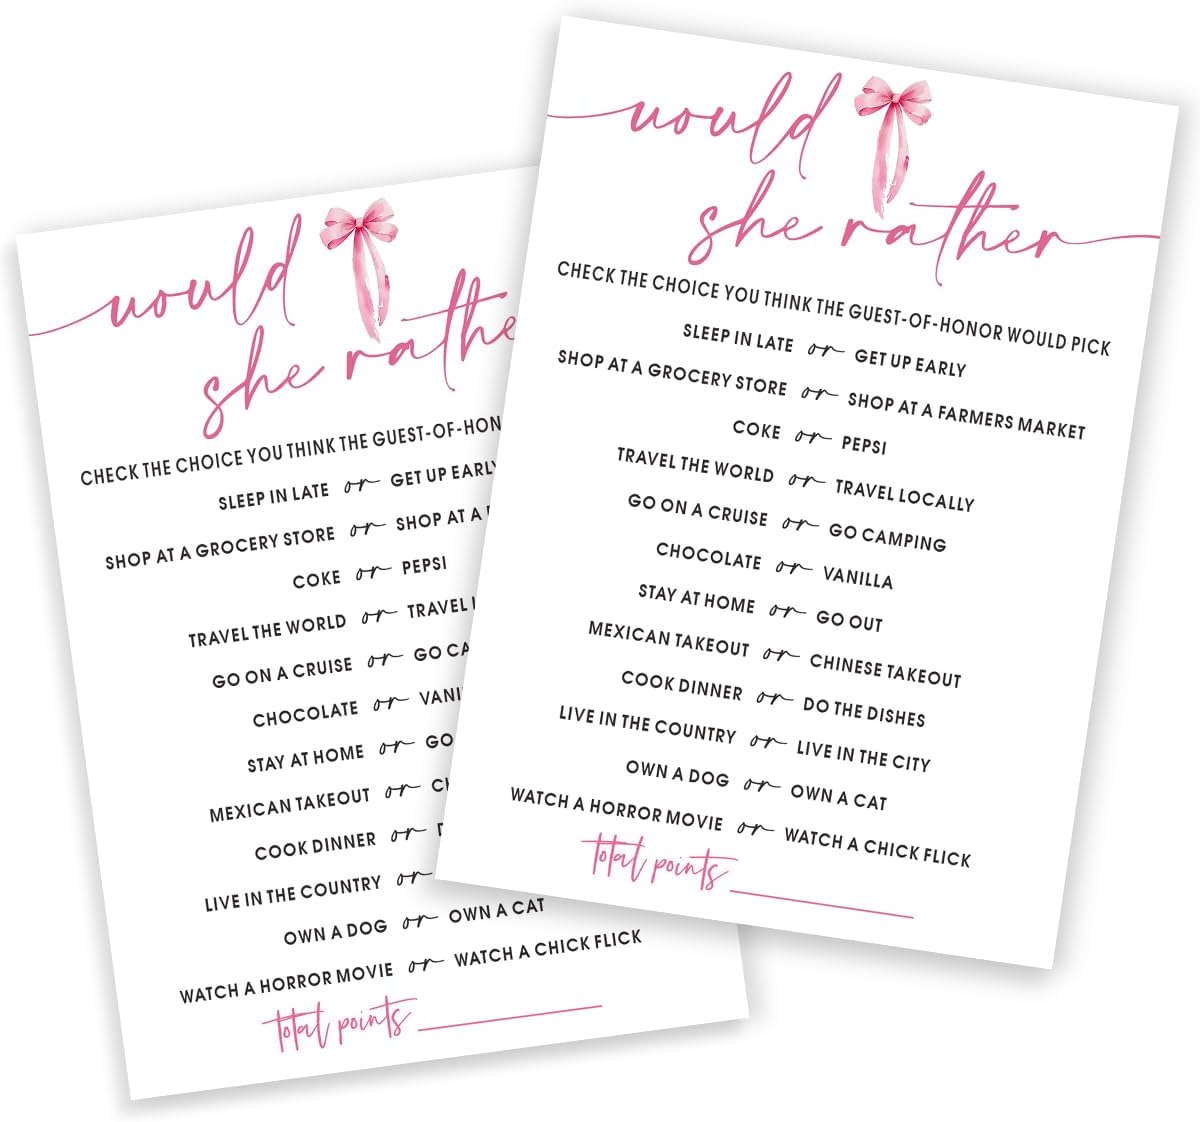 would
she rathe
CHECK THE CHOICE YOU THINK THE GUEST-OF-HON
SLEEP IN LATE or GET UP EARLY
SHOP AT A GROCERY STORE or SHOP AT A
COKE or PEPSI
TRAVEL THE WORLD or TRAVEL
GO ON A CRUISE or GO CA
CHOCOLATE or VANI
STAY AT HOME or GO
MEXICAN TAKEOUT or C
COOK DINNER or
LIVE IN THE COUNTRY or
OWN A DOG or OWN A CAT
WATCH A HORROR MOVIE or WATCH A CHICK FLICK
total points
would
she rather
CHECK THE CHOICE YOU THINK THE GUEST-OF-HONOR WOULD PICK
SLEEP IN LATE or GET UP EARLY
SHOP AT A GROCERY STORE or SHOP AT A FARMERS MARKET
COKE or PEPSI
TRAVEL THE WORLD or TRAVEL LOCALLY
GO ON A CRUISE or GO CAMPING
CHOCOLATE or VANILLA
STAY AT HOME or GO OUT
MEXICAN TAKEOUT or CHINESE TAKEOUT
COOK DINNER or DO THE DISHES
LIVE IN THE COUNTRY or LIVE IN THE CITY
OWN A DOG or OWN A CAT
WATCH A HORROR MOVIE or WATCH A CHICK FLICK
total points